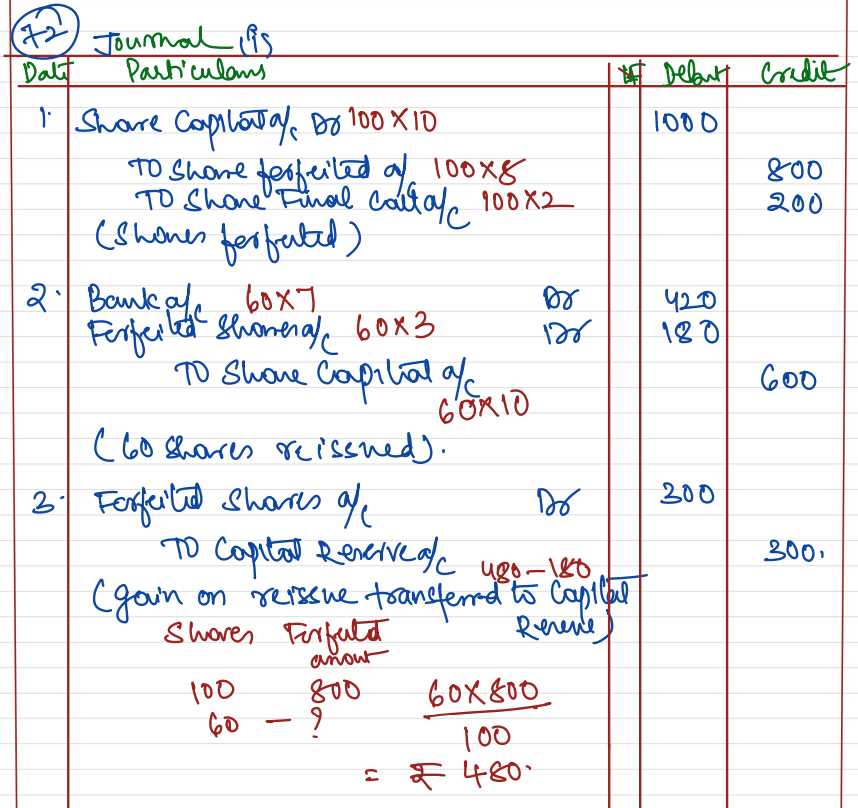 72 Journal (i)
Date Particulars LF Debit Credit
1. Share Capital a/c Dr 100 X 10 1000
To Share forfeited a/c 100 X 8 800
To Share Final Call a/c 100 X 2 200
(Shares forfeited)
2. Bank a/c 60 X 7 Dr 420
Forfeited Shares a/c 60 X 3 Dr 180
To Share Capital a/c 600
60 X 10
(60 shares reissued).
3. Forfeited Shares a/c Dr 300
To Capital Reserve a/c 300.
480 - 180
(gain on reissue transferred to Capital
Reserve)
Shares Forfeited
amount
100 800 60 X 800
60 - ? 100
= ₹ 480.